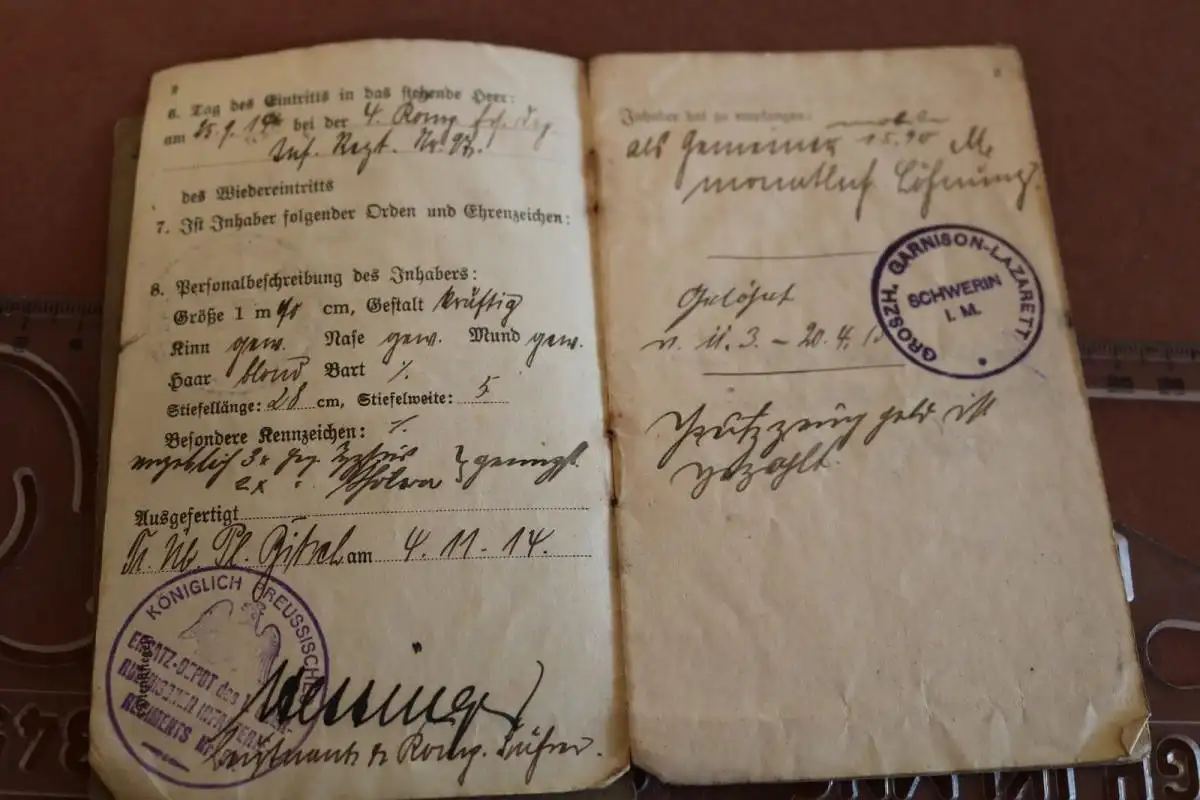 6. Tag des Eintritts in das stehende Heer:
am 25.9.14 bei der 4. Komp.
Inf. Regt. Nr.
des Wiedereintritts
7. Ist Inhaber folgender Orden und Ehrenzeichen:
8. Personalbeschreibung des Inhabers:
Größe 1 m 70 cm, Gestalt kräftig
Kinn gew. Nase gew. Mund gew.
Haar blond Bart ./.
Stiefellänge: 28 cm, Stiefelweite: 5
Besondere Kennzeichen: ./.
angeblich 3x geg. Typhus
2x " Cholera } geimpft
Ausgefertigt
Tr. Üb. Pl. am 4.11.14.
KÖNIGLICH PREUSSISCHES
ERSATZ-DEPOT des
INFANTERIE-
REGIMENTS
Leutnant & Komp. Führer.
Inhaber hat zu empfangen:
als Gemeiner 15.90 M.
monatlich Löhnung
GROSZH. GARNISON-LAZARETT
SCHWERIN
I. M.
Gelöhnt
v. 11.3. - 20.4.15
Putzzeuggeld ist
gezahlt.